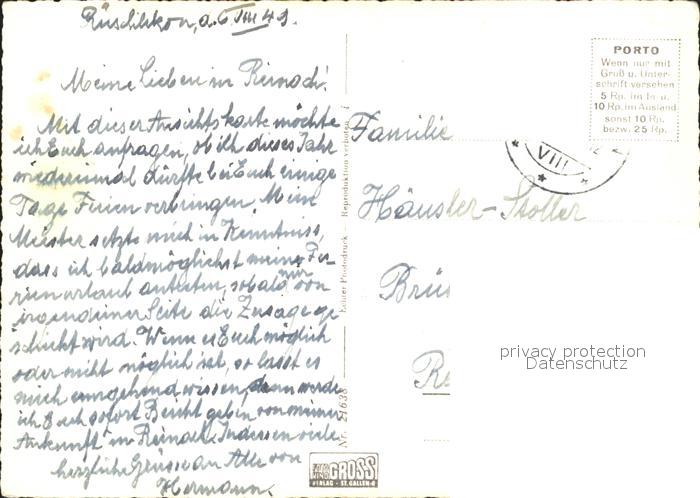 Rüschlikon, a. 6. VIII 49.
Meine Lieben in Reinach!
Mit dieser Ansichtskarte möchte
ich Euch anfragen, ob ich dieses Jahr
wiedereinmal dürfte bei Euch einige
Tage Ferien verbringen. Mein
Meister setzte mich in Kenntniss,
dass ich baldmöglichst meine Fe-
rienurlaub antreten, sobald mir von
irgendeiner Seite die Zusage ge
schickt wird. Wenn es Euch möglich
oder nicht möglich ist, so lasst es
mich umgehend wissen, denn werde
ich Euch sofort Bericht geben von meiner
Ankunft in Reinach. Indessen viele
herzliche Grüsse an Alle von
Hermann.
Nr. 21638
Echter Photodruck — Reproduktion verboten
GROSS
VERLAG - ST. GALLEN
PORTO
Wenn nur mit
Gruß u. Unter-
schrift versehen
5 Rp. im In- u.
10 Rp. im Ausland
sonst 10 Rp.
bezw. 25 Rp.
VIII
Familie
Häusler-Stoller
Brü
Re
privacy protection
Datenschutz